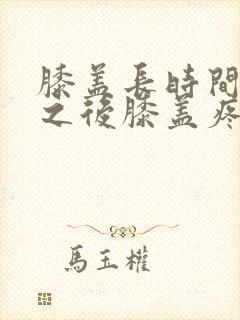 膝盖長時間
之後膝盖疼
馬玉權